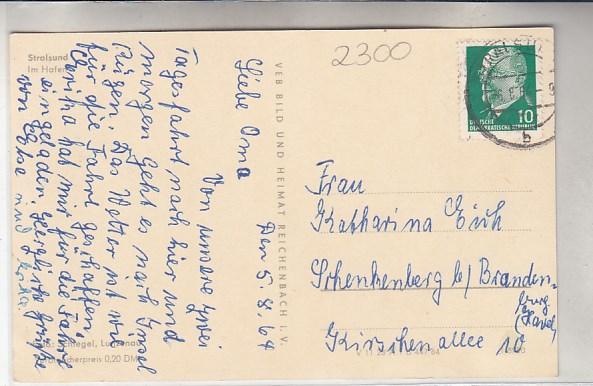 Stralsund
Im Hafen
2300
Den 5.8.64
Liebe Oma
Von unsere zwei
Tagesfahrt nach hier und
morgen geht es nach Insel
Rügen. Das Wetter ist wie
für die Fahrt geschaffen.
hat mir für die Fahrt
eingeladen. Herzliche Grüße
von
und
VEB BILD UND HEIMAT REICHENBACH I. V.
Foto: Schlegel, Lunzenau
Verbraucherpreis 0,20 DM
10
DEUTSCHE
DEMOKRATISCHE REPUBLIK
b
Frau
Katharina Eich
Schenkenberg b/ Branden-
burg
(Havel)
Kirschenallee 10